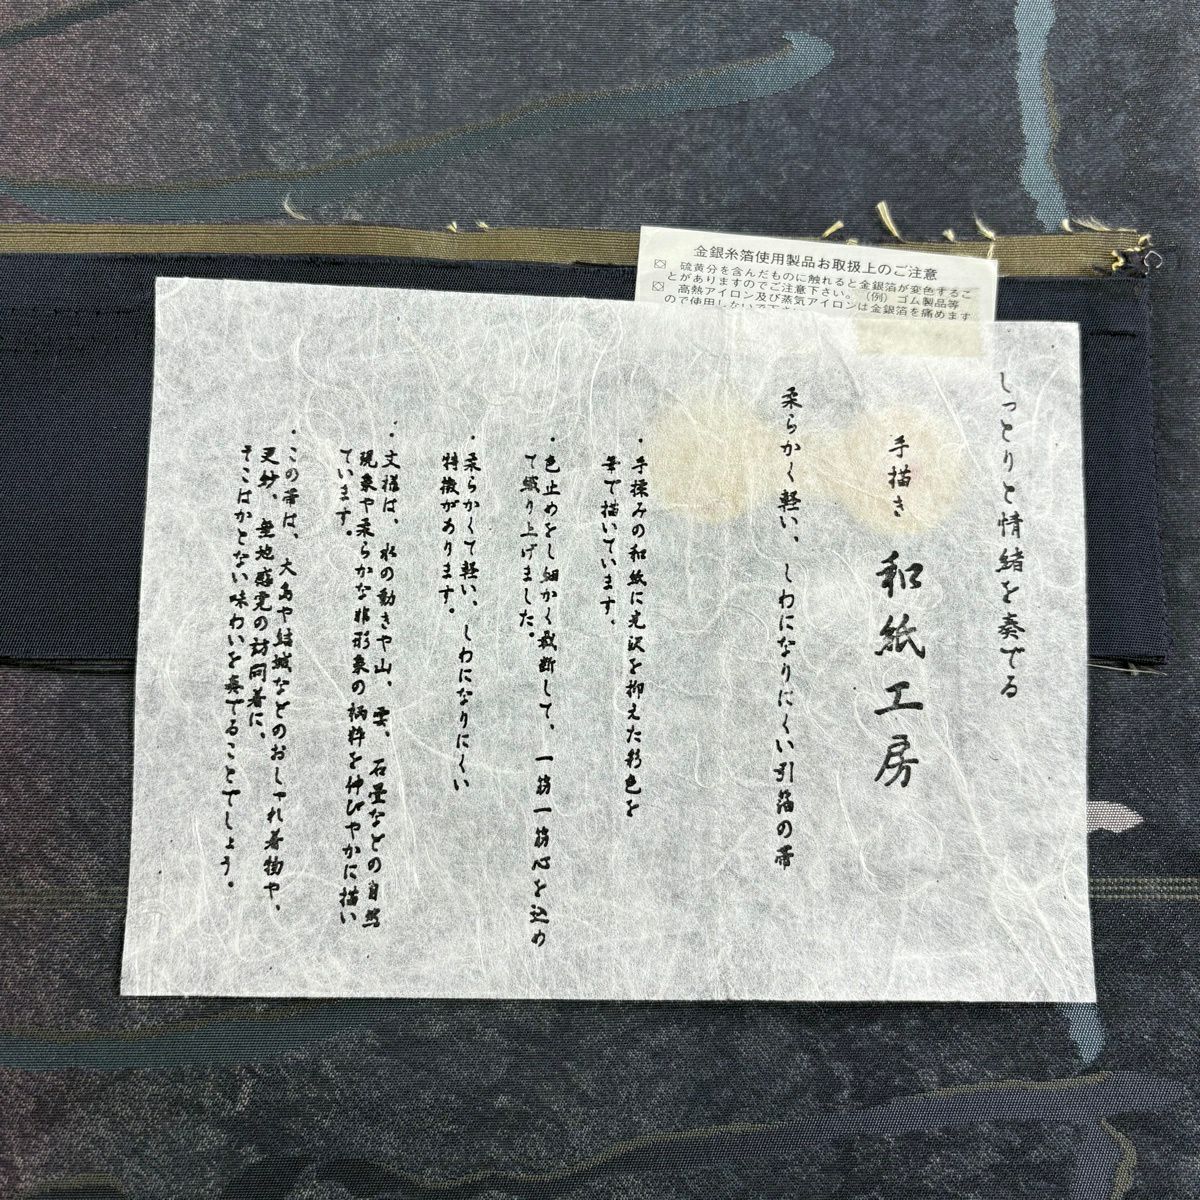 金銀糸箔使用製品お取扱上のご注意
硫黄分を含んだものに触れると金銀箔が変色するこ
とがありますのでご注意下さい。(例)ゴム製品等
高熱アイロン及び蒸気アイロンは金銀箔を痛めます
ので使用しないで下さい
しっとりと情緒を奏でる
手描き 和紙工房
柔らかく軽い、しわになりにくい引箔の帯
・手揉みの和紙に光沢を抑えた彩色を
筆で描いています。
・色止めをし細かく裁断して、一筋一筋心を込め
て織り上げました。
・柔らかくて軽い、しわになりにくい
特徴があります。
・文様は、水の動きや山、雲、石畳などの自然
現象や柔らかな非形象の柄粋を伸びやかに描い
ています。
・この帯は、大島や結城などのおしゃれ着物や、
更紗、無地感覚の訪問着に、
そこはかとない味わいを奏でることでしょう。